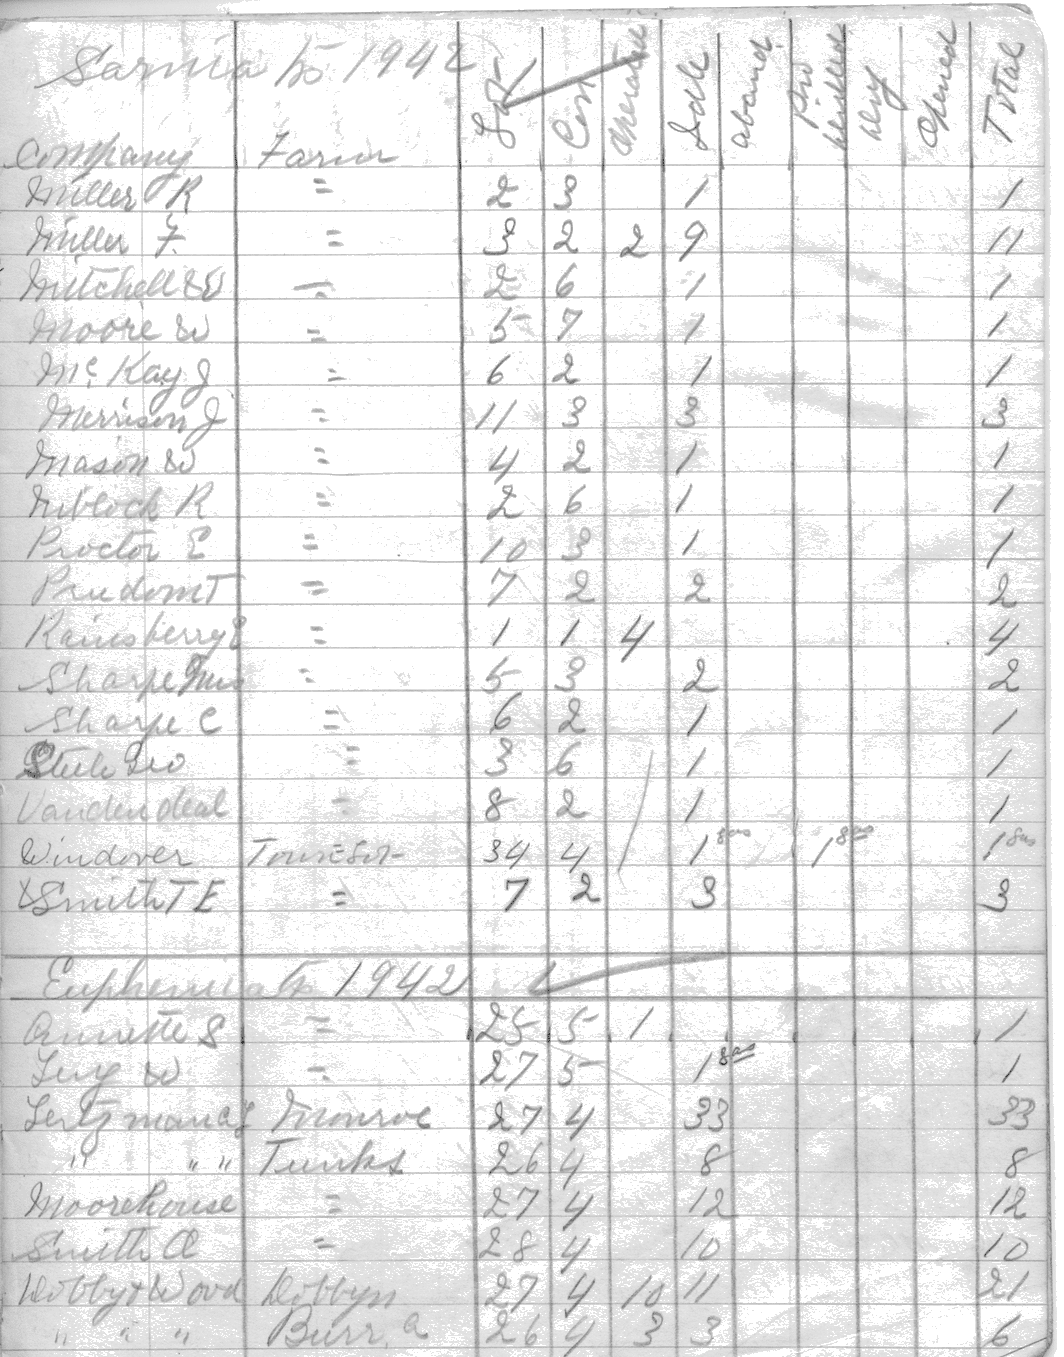 Sarnia to 1942
Company Farm Lot Con Operated Idle aband Dry Opened Total
Miller R = 2 3 1 1
Miller F = 3 2 2 9 11
Mitchell W = 2 6 1 1
Moore W = 5 7 1 1
Mc Kay J = 6 2 1 1
Morrison J = 11 3 3 3
Mason W = 4 2 1 1
Niblock R = 2 6 1 1
Proctor E = 10 3 1 1
Prudom T = 7 2 2 2
Rainsberry = 1 1 4 4
Sharpe = 5 3 2 2
Sharpe C = 6 2 1 1
= 3 6 1 1
Vandendeal = 8 2 1 1
Windover 34 4 1 gas 1 gas 1 gas
Smith T E = 7 2 3 3
Euphemia to 1942
Annette S = 25 5 1 1
W = 27 5 1 gas 1
Monroe 27 4 33 33
" " " Tunks 26 4 8 8
Moorehouse = 27 4 12 12
Smith O = 28 4 10 10
Dobbyn Wood Dobbyn 27 4 10 11 21
" " " Burr a 26 4 3 3 6